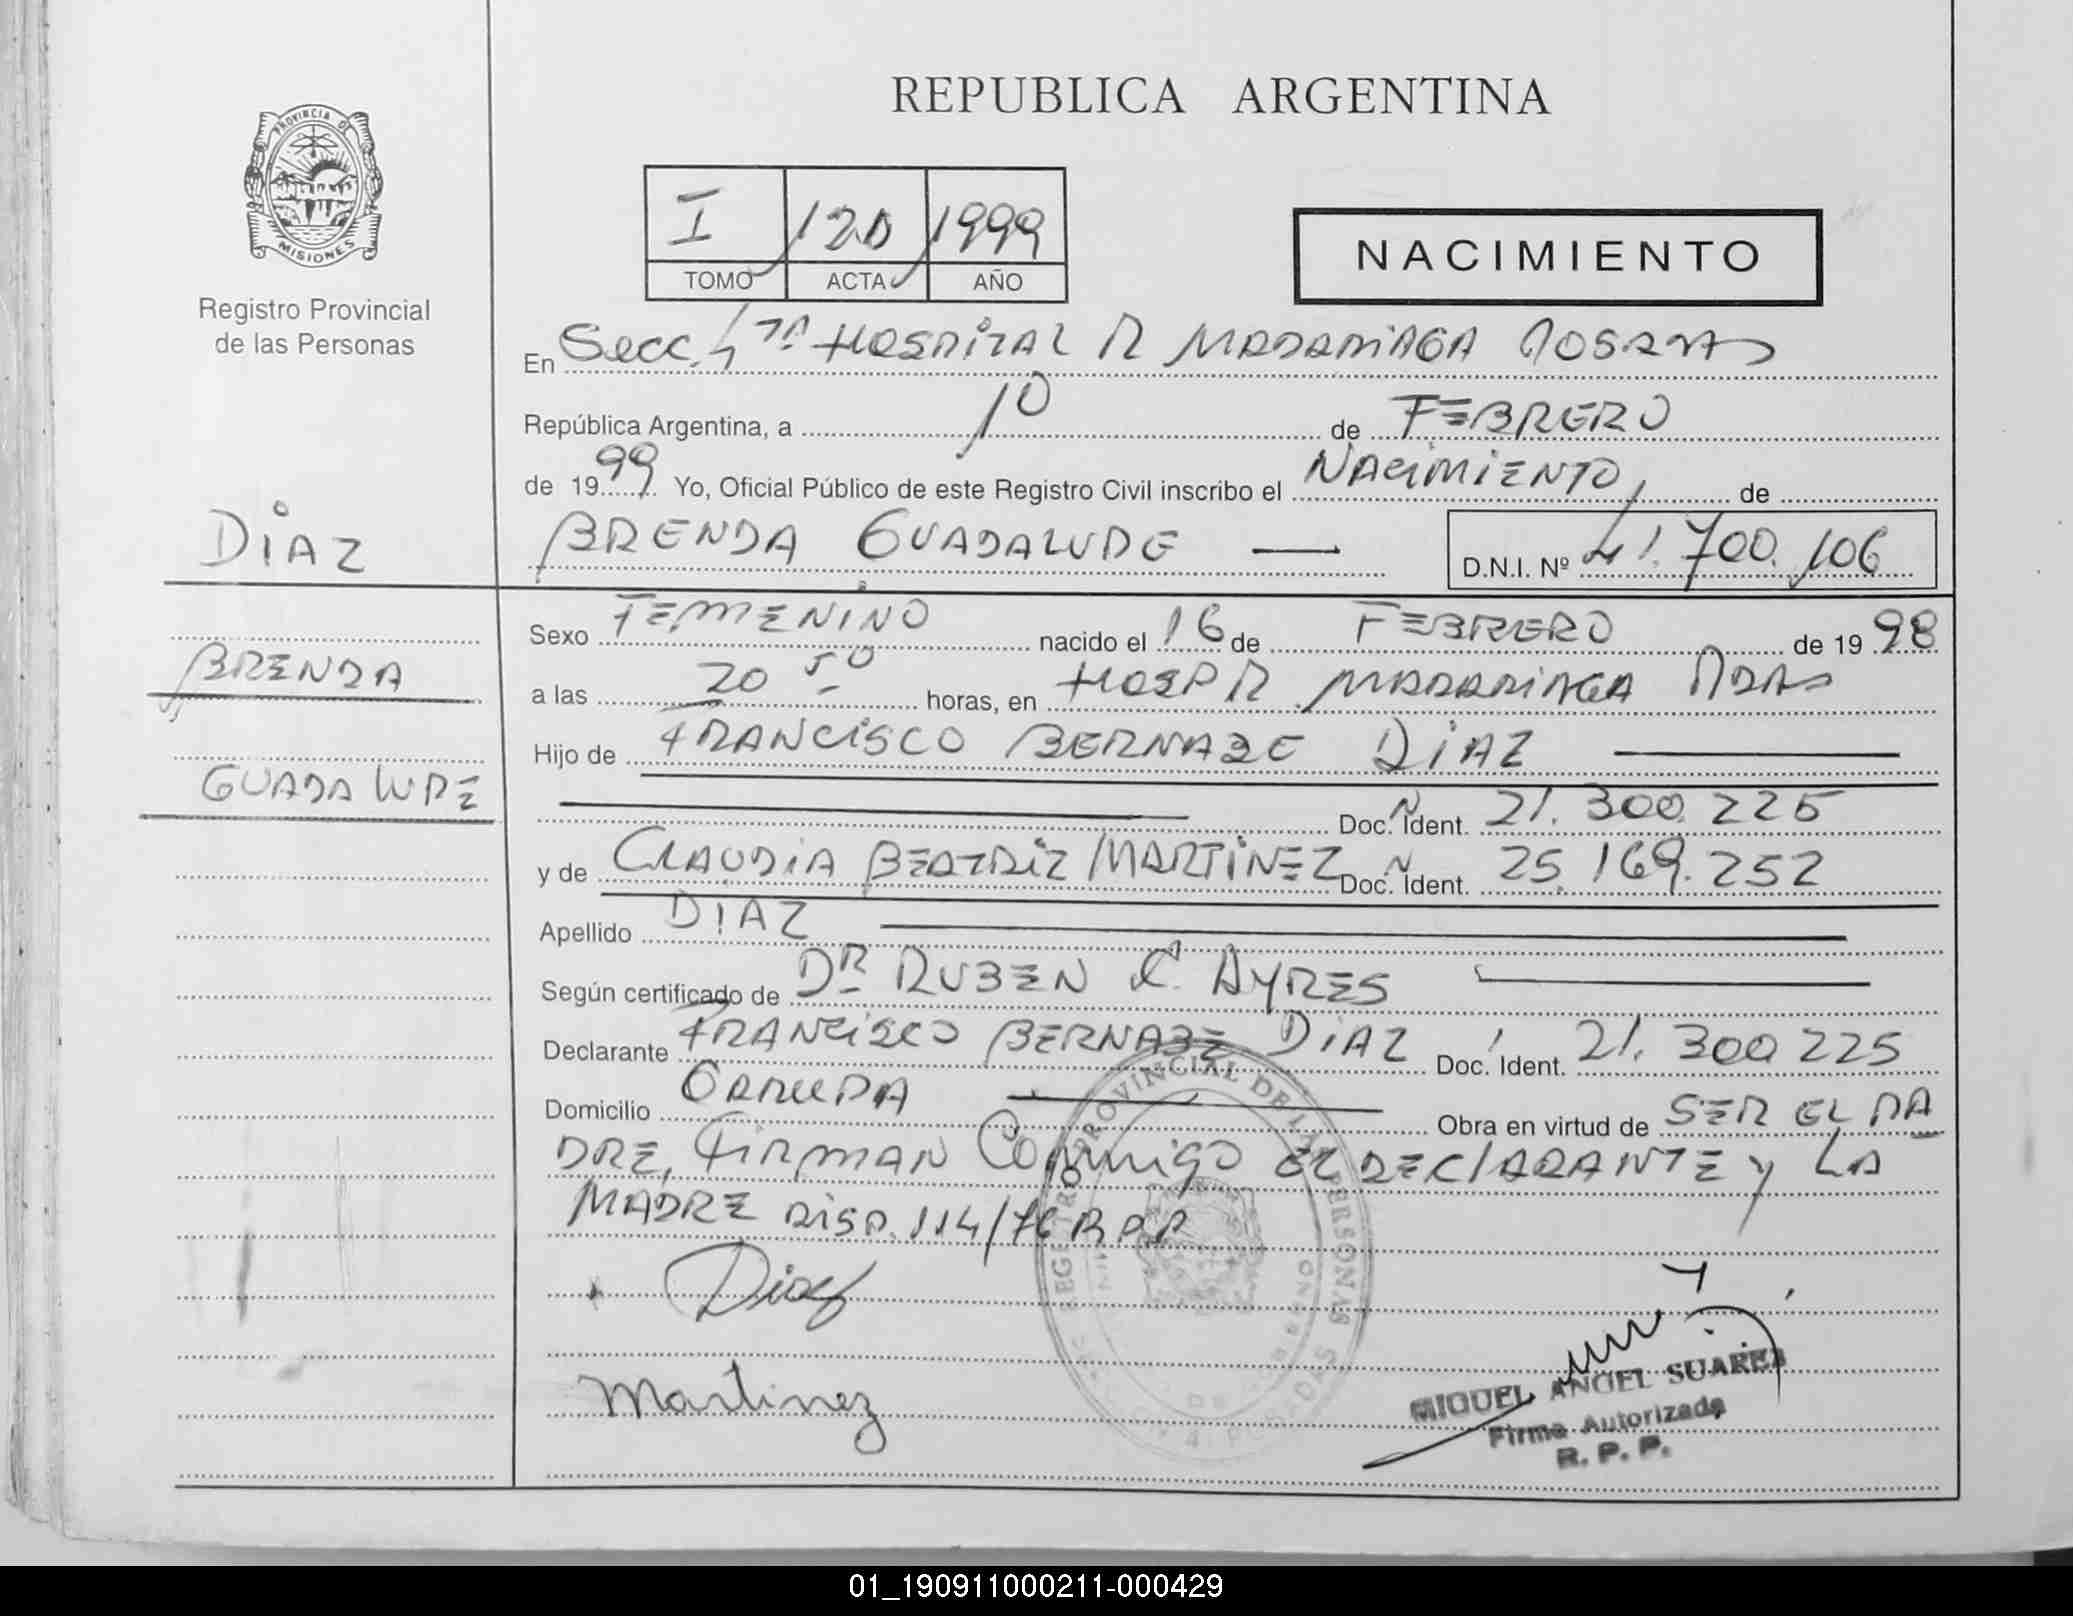 REPUBLICA ARGENTINA
PROVINCIA DE
MISIONES
Registro Provincial
de las Personas
I 120 1999
TOMO ACTA AÑO
NACIMIENTO
En Secc. 4ta HOSPITAL R MADARIAGA POSADAS
República Argentina, a 10 de FEBRERO
de 1999 Yo, Oficial Público de este Registro Civil inscribo el NACIMIENTO, de
BRENDA GUADALUPE — D.N.I. Nº 41.700.106
DIAZ
BRENDA
GUADALUPE
Sexo FEMENINO nacido el 16 de FEBRERO de 1998
a las 20 50 horas, en HOSP R MADARIAGA PDAS
Hijo de FRANCISCO BERNABE DIAZ
Doc. Ident. 21.300.225
y de CLAUDIA BEATRIZ MARTINEZ Doc. Ident. 25.169.252
Apellido DIAZ
Según certificado de DR RUBEN C. AYRES
Declarante FRANCISCO BERNABE DIAZ Doc. Ident. 21.300225
Domicilio GARUPA Obra en virtud de SER EL PA
DRE, FIRMAN Conmigo EL DECLARANTE y LA
MADRE DISP. 114/76 RPP
Diaz
Martinez
REGISTRO PROVINCIAL DE LAS PERSONAS
MIGUEL ANGEL SUARES
Firma Autorizada
R. P. P.
01_190911000211-000429